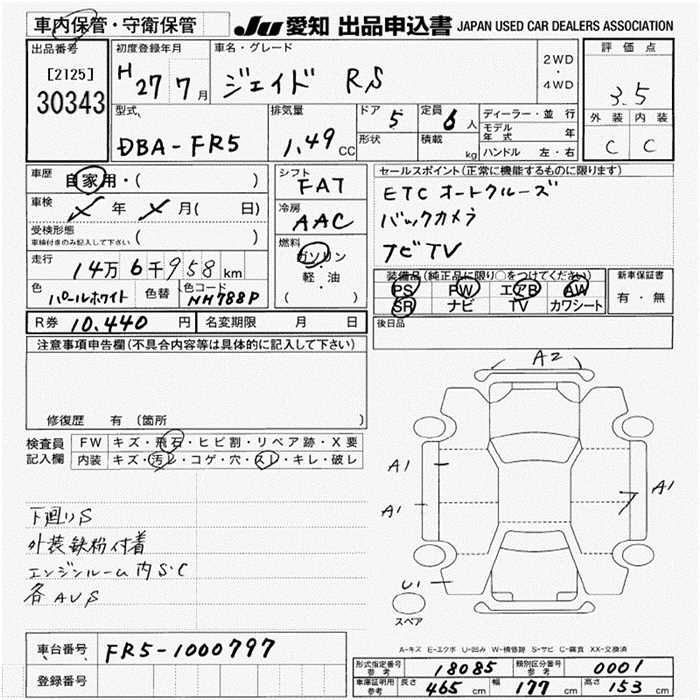 車内保管・守衛保管 JU 愛知 出品申込書 JAPAN USED CAR DEALERS ASSOCIATION
出品番号 初度登録年月 車名・グレード 評価点
[2125] H 27 7月 ジェイド RS 2WD・4WD 3.5
30343
型式 排気量 ドア 5 定員 6人 ディーラー・並行 外装 内装
DBA-FR5 1.49cc 形状 積載 kg モデル年式 年 C C
ハンドル 左・右
車歴 自家用・( ) シフト FAT セールスポイント(正常に機能するものに限ります)
車検 年 月( 日) 冷房 AAC ETC オートクルーズ
受検形態 ( ) バックカメラ
車検付きのみ記入して下さい 燃料 ガソリン ナビTV
走行 14万6千958km 軽・油
色 パールホワイト 色替 色コード NH788P ( )
装備品(純正品に限り○をつけてください) 新車保証書
PS PW エアB AW 有・無
SR ナビ TV カワシート
R券 10,440円 名変期限 月 日 後日品
注意事項申告欄(不具合内容等は具体的に記入して下さい)
修復歴 有(箇所 )
検査員 FW キズ・飛石・ヒビ割・リペア跡・X要
記入欄 内装 キズ・汚レ・コゲ・穴・スレ・キレ・破レ
A2
A1
A1
A1
U1
スペア
下廻りS
外装鉄粉付着
エンジンルーム内S・C
各AUS
A-キズ E-エクボ U-凹み W-補修跡 S-サビ C-腐食 XX-交換済
車台番号 FR5-1000797
登録番号
形式指定番号 参考 18085 類別区分番号 参考 0001
車庫証明用 参考 長さ 465cm 幅 177cm 高さ 153cm